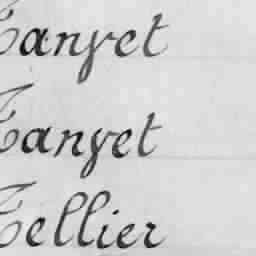 Tanyet
Tanyet
Tellier